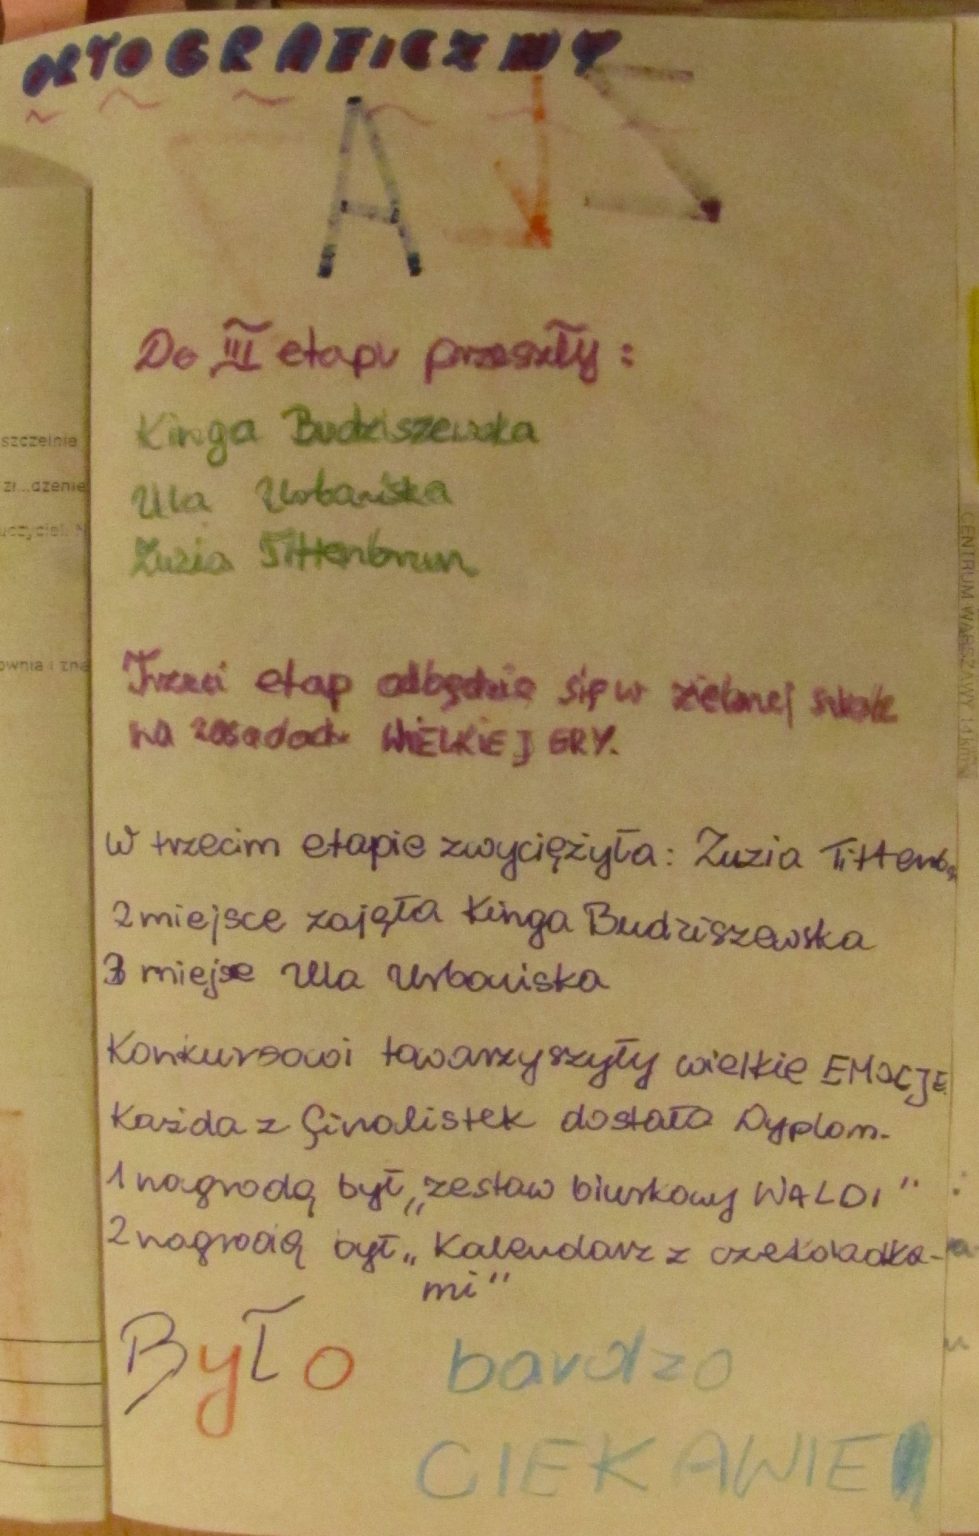 ORTOGRAFICZNY
Do III etapu przeszły:
Kinga Budziszewska
Ula Urbańska
Zuzia Tittenbrun
Trzeci etap odbędzie się w zielonej szkole
na zasadach WIELKIEJ GRY.
W trzecim etapie zwyciężyła: Zuzia Tittenb
2 miejsce zajęła Kinga Budziszewska
3 miejsce Ula Urbańska
Konkursowi towarzyszyły wielkie EMOCJE
Każda z finalistek dostała Dyplom.
1 nagrodą był „zestaw biurkowy WALDI"
2 nagrodą był „Kalendarz z czekoladka-
mi"
Było bardzo
CIEKAWIE
szczelnie
ownia i zna
CENTRUM WARSZAWY